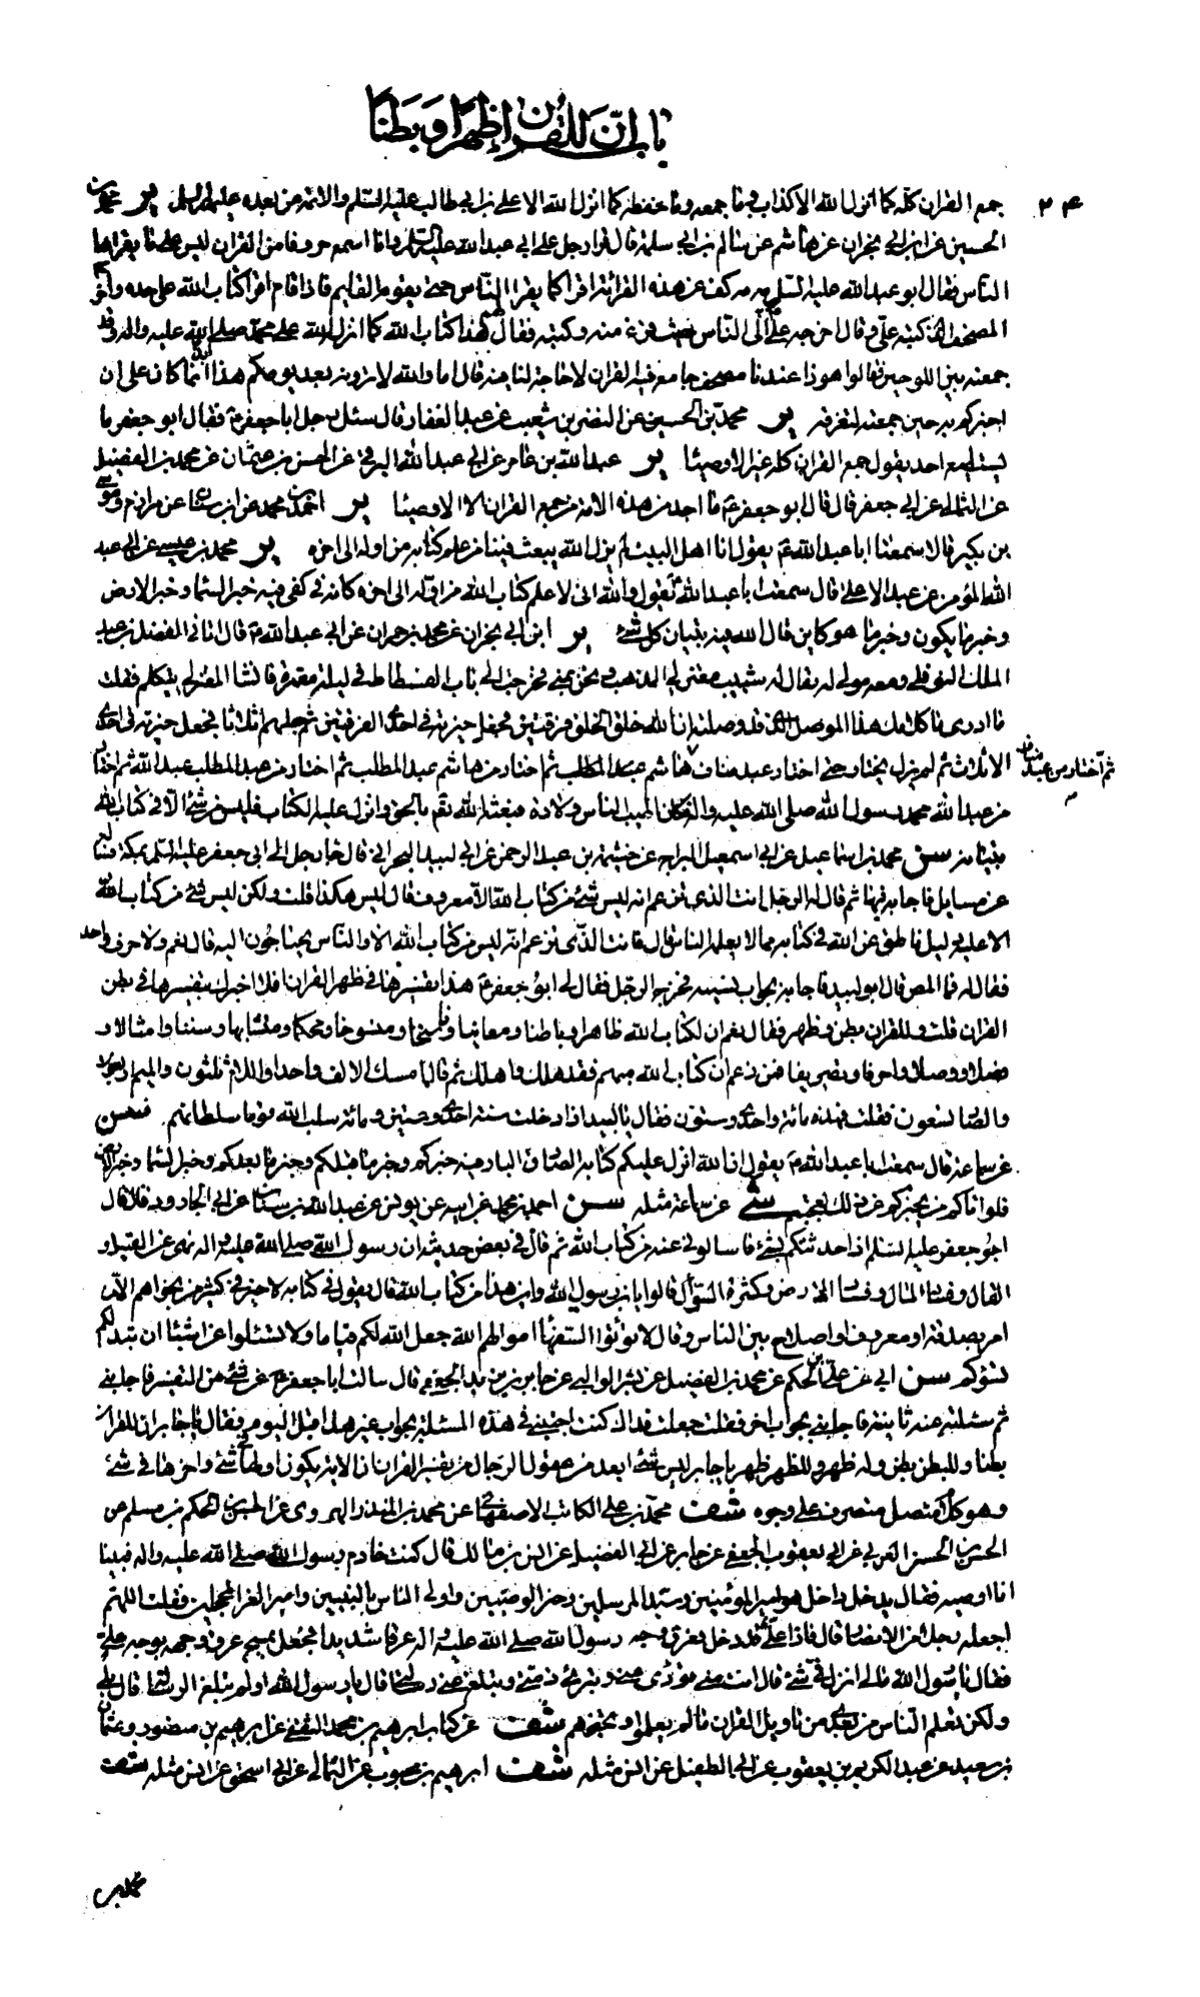 باب ان للقرآن ظهرا وبطنا
٢٤
جمع القران كله كما انزل الله الا كذاب وما جمعه وما حفظه كما انزل الله الا علي بن ابي طالب عليه السلم والائمة من بعده عليهم السلم ير محمد بن
الحسين عن ابن ابي نجران عن هاشم عن سالم بن ابي سلمة قال قرا رجل على ابي عبد الله عليه السلم وانا اسمع حروفا من القران ليس على ما يقراها
الناس فقال ابو عبد الله عليه السلم مه مه كف عن هذه القرائة اقرا كما يقرا الناس حتى يقوم القايم فاذا قام اقرا كتاب الله على حده واخرج
المصحف الذى كتبه علي وقال اخرجه علي الى الناس حيث فرغ منه وكتبه فقال لهم هذا كتاب الله كما انزل الله على محمد صلى الله عليه واله وقد
جمعته بين اللوحين قالوا هوذا عندنا مصحف جامع فيه القران لا حاجة لنا فيه قال اما والله لا ترونه بعد يومكم هذا ابدا انما كان علي ان
اخبركم به حين جمعته لتقرؤه ير محمد بن الحسين عن النضر بن شعيب عن عبد الغفار قال سئل رجل ابا جعفر ع فقال ابو جعفر ما
يستطيع احد يقول جمع القران كله غير الاوصيا ير عبد الله بن عامر عن ابي عبد الله البرقي عن الحسن بن عثمان عن محمد بن الفضيل
عن الثمالي عن ابي جعفر قال قال ابو جعفر ع ما احد من هذه الامة من جمع القران الا الاوصيا ير احمد بن محمد عن ابن سنان عن مرازم وموسى
بن بكير قالا سمعنا ابا عبد الله ع يقول انا اهل البيت لم يزل الله يبعث فينا من يعلم كتابه من اوله الى اخره ير محمد بن عيسى عن ابي عبد
الله المؤمن عن عبد الاعلى قال سمعت ابا عبد الله ع يقول والله اني لاعلم كتاب الله من اوله الى اخره كانه في كفي فيه خبر السما وخبر الارض
وخبر ما يكون وخبر ما هو كاين قال الله فيه تبيان كل شئ ير ابن ابي نجران عن محمد بن حمران عن ابي عبد الله ع قال اتاني الفضل بن عبد
الملك النوفلي ومعه مولى له يقال له شبيب معتزلي المذهب ونحن بمنى فخرجت الى باب الفسطاط في ليلة مقمرة فانشا المعتزلي يتكلم فقلت
ما ادري ما كلامك هذا الموصل الذى قد وصلته ان الله خلق الخلق فرقتين فجعل خيرته في احدى الفرقتين ثم جعلهم اثلاثا فجعل خيرته في احدى
الاثلاث ثم لم يزل يختار حتى اختار عبد مناف هاشم عبد المطلب ثم اختار من هاشم عبد المطلب ثم اختار من عبد المطلب عبد الله ثم اختار
ثم اختار من عبد مناف
من عبد الله محمد رسول الله صلى الله عليه واله فكان اطيب الناس ولادة فبعثه الله بالحق وانزل عليه الكتاب فليس من شئ الا في كتاب الله
تبيانه سن محمد بن اسماعيل عن ابي اسمعيل السراج عن خيثمة بن عبد الرحمن عن ابي لبيد البحراني قال جاء رجل الى ابي جعفر عليه السلم بمكة فسئله
عن مسايل فاجابه فيها ثم قال له الرجل انت الذي تزعم انه ليس شئ من كتاب الله الا معروف قال ليس هكذا قلت ولكن ليس شئ من كتاب الله
الا عليه دليل ناطق عن الله في كتابه مما لا يعلمه الناس قال فانت الذي تزعم انه ليس من كتاب الله الا والناس يحتاجون اليه قال نعم ولا حرف واحد
فقال له فما المص قال ابو لبيد فاجابه بجواب نسيته فخرج الرجل فقال لي ابو جعفر ع هذا تفسيرها في ظهر القران افلا اخبرك بتفسيرها في بطن
القران قلت وللقران بطن وظهر فقال نعم ان لكتاب الله ظاهرا وباطنا ومعاينا وناسخا ومنسوخا ومحكما ومتشابها وسننا وامثالا و
فصلا ووصلا واحرفا وتصريفا فمن زعم ان كتاب الله مبهم فقد هلك واهلك ثم قال امسك الالف واحد واللام ثلثون والميم اربعون
والصاد تسعون فقلت فهذه مائة واحدى وستون فقال يا لبيد اذا دخلت سنة احدى وستين ومائة سلب الله قوما سلطانهم سن
عن سماعة قال سمعت ابا عبد الله ع يقول ان الله انزل عليكم كتابه الصادق البار فيه خبركم وخبر ما قبلكم وخبر ما بعدكم وخبر السما وخبر الارض
فلو اتاكم من يخبركم عن ذلك لعجبتم شئ عن سماعة مثله سن احمد بن محمد عن ابيه عن يونس عن عبد الله بن سنان عن ابي الجارود قال قال
ابو جعفر عليه السلم اذا حدثتكم بشئ فاسالوني عنه من كتاب الله ثم قال في بعض حديثه ان رسول الله صلى الله عليه واله نهى عن القيل و
القال وفساد المال وفساد الارض وكثرة السؤال قالوا يا بن رسول الله واين هذا من كتاب الله قال يقول في كتابه لا خير في كثير من نجواهم الا من
امر بصدقة او معروف او اصلاح بين الناس وقال لا تؤتوا السفهاء اموالكم التي جعل الله لكم قياما ولا تسئلوا عن اشيا ان تبد لكم
تسؤكم سن ابي عن علي بن الحكم عن محمد بن الفضيل عن بشر الوابشي عن جابر بن يزيد الجعفي قال سالت ابا جعفر ع عن شئ من التفسير فاجابني
ثم سئلته عنه ثانية فاجابني بجواب اخر فقلت جعلت فداك كنت اجبتني في هذه المسئلة بجواب غير هذا قبل اليوم فقال يا جابر ان للقران
بطنا وللبطن بطن وله ظهر وللظهر ظهر يا جابر ليس شئ ابعد من عقول الرجال من تفسير القران ان الاية يكون اولها في شئ واخرها في شئ
وهو كلام متصل متصرف على وجوه شف محمد بن علي الكاتب الاصفهاني عن محمد بن المنذر الهروي عن الحسين بن الحكم بن مسلم عن
الحسن بن الحسن العرني عن ابي يعقوب الجعفي عن جابر عن ابي الطفيل عن انس بن مالك قال كنت خادم رسول الله صلى الله عليه واله فبينا
انا اوضيه فقال يدخل داخل هو امير المؤمنين وسيد المرسلين وخير الوصيين واولى الناس بالنبيين وامير الغر المحجلين فقلت اللهم
اجعله رجلا من الانصار قال فاذا علي قد دخل فعرق وجه رسول الله صلى الله عليه واله عرقا شديدا فجعل يمسح عرق وجهه بوجه علي
فقال يا رسول الله مالي انزل في شئ قال انت مني تؤدي عني وتبرئ ذمتي وتبلغ عني رسالتي قال يا رسول الله اولم تبلغ الرسالة قال بلى
ولكن تعلم الناس من بعدي من تاويل القران ما لم يعلموا وتخبرهم شف عن كتاب ابرهيم بن محمد الثقفي عن ابرهيم بن منصور وعثمان
بن سعيد عن عبد الكريم بن يعقوب عن ابي الطفيل عن انس مثله شف ابرهيم بن محبوب عن الثمالي عن ابي اسحق عن انس مثله شف
محمد بن